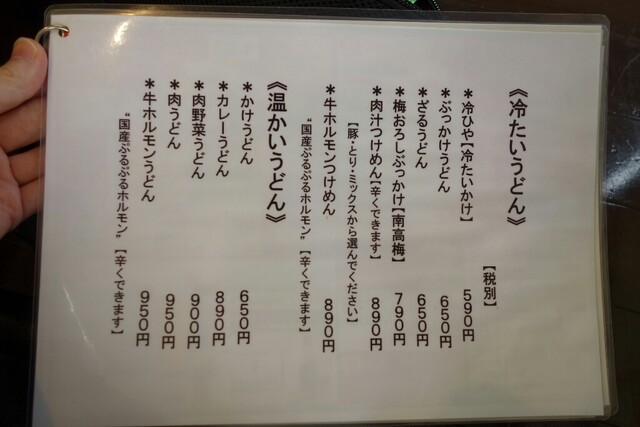 《冷たいうどん》
【税別】
＊冷ひや【冷たいかけ】 590円
＊ぶっかけうどん 650円
＊ざるうどん 650円
＊梅おろしぶっかけ【南高梅】 790円
＊肉汁つけめん【辛くできます】 890円
【豚・とり・ミックスから選んでください】
＊牛ホルモンつけめん 890円
“国産ぷるぷるホルモン”【辛くできます】
《温かいうどん》
＊かけうどん 650円
＊カレーうどん 890円
＊肉野菜うどん 900円
＊肉うどん 950円
＊牛ホルモンうどん 950円
“国産ぷるぷるホルモン”【辛くできます】